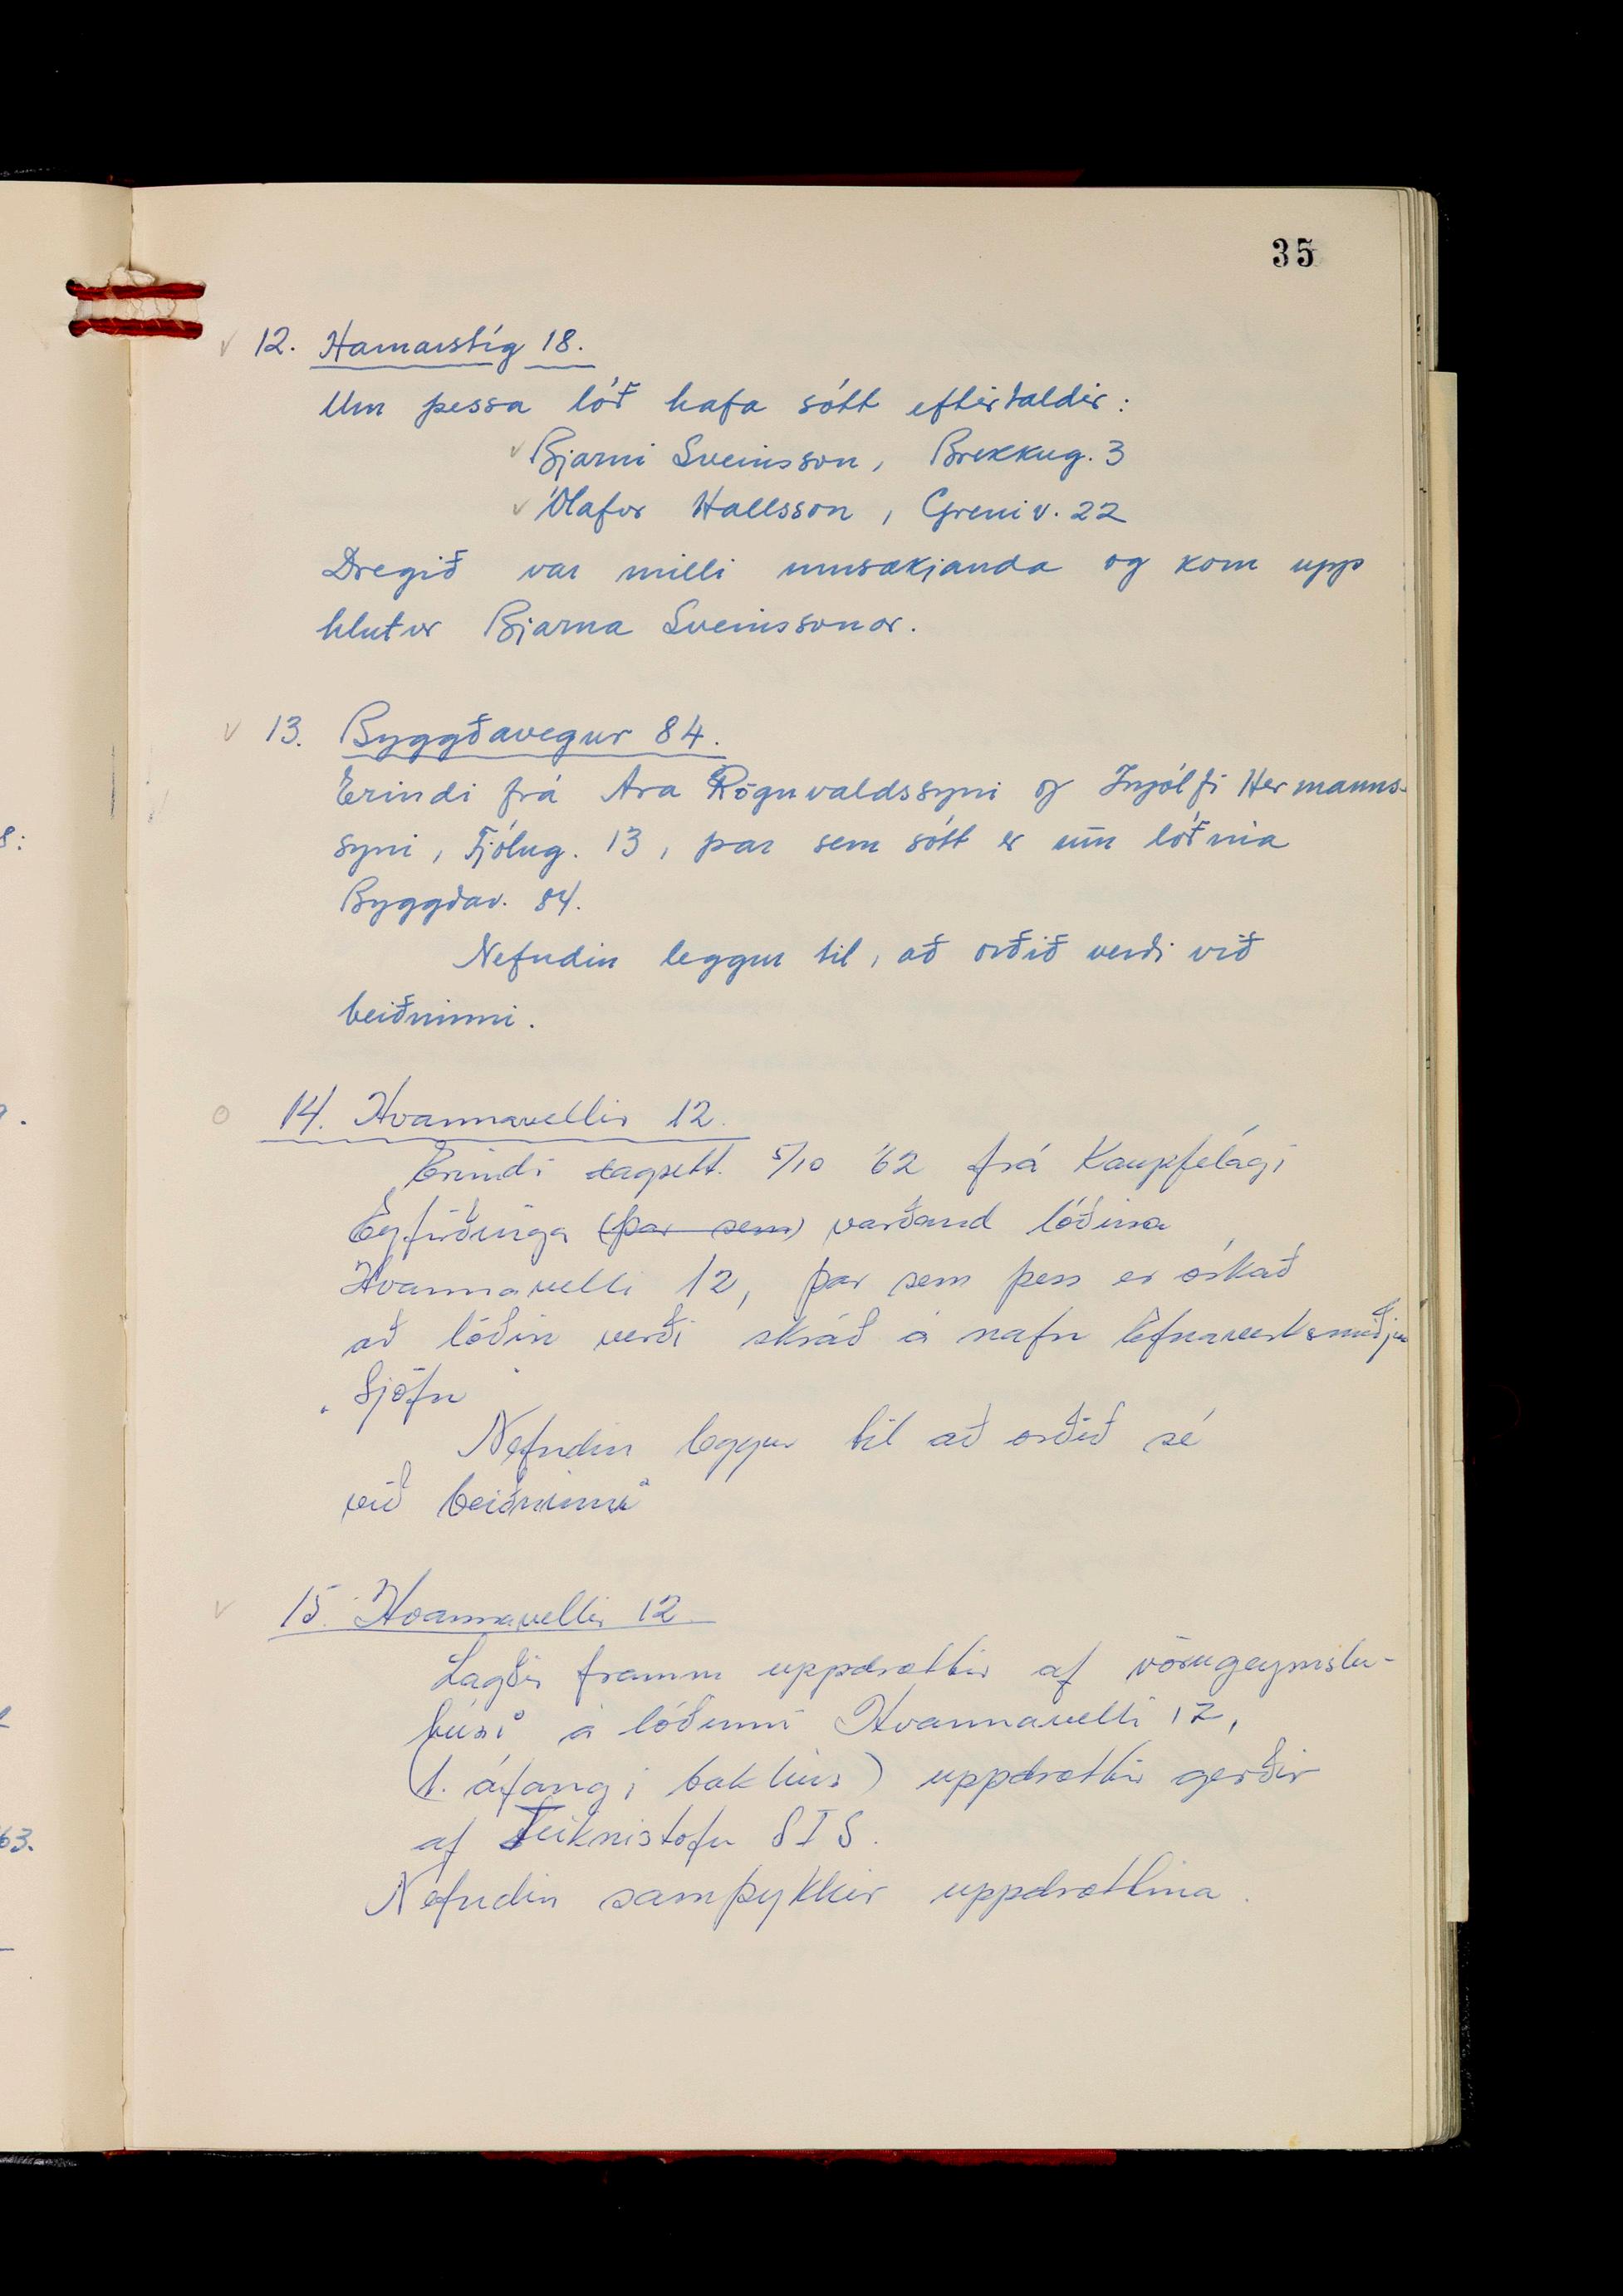 35
12. Hamarstíg 18.
Um þessa lóð hafa sótt eftirtaldir:
Bjarni Sveinsson, Brekkug. 3
Ólafur Hallsson, Greniv. 22
Dregið var milli umsækjanda og kom upp
hlutur Bjarna Sveinssonar.
13. Byggðavegur 84.
Erindi frá Ara Rögnvaldssyni og Ingólfi Hermanns-
syni, Fjólug. 13, þar sem sótt er um lóðina
Byggðav. 84.
Nefndin leggur til, að orðið verði við
beiðninni.
14. Hvannavellir 12.
Erindi dagsett. 5/10 '62 frá Kaupfélagi
Eyfirðinga (þar sem) varðand lóðina
Hvannavelli 12, þar sem þess er óskað
að lóðin verði skráð á nafn Efnaverksmiðju
"Sjöfn"
Nefndin leggur til að orðið sé
við beiðninni
15. Hvannavellir 12
Lagðir framm uppdrættir af vörugeymslu-
húsi á lóðinni Hvannavelli 12,
(1. áfangi bakhús) uppdrættir gerðir
af Teiknistofu SIS.
Nefndin samþykkir uppdrættina.
8:
63.